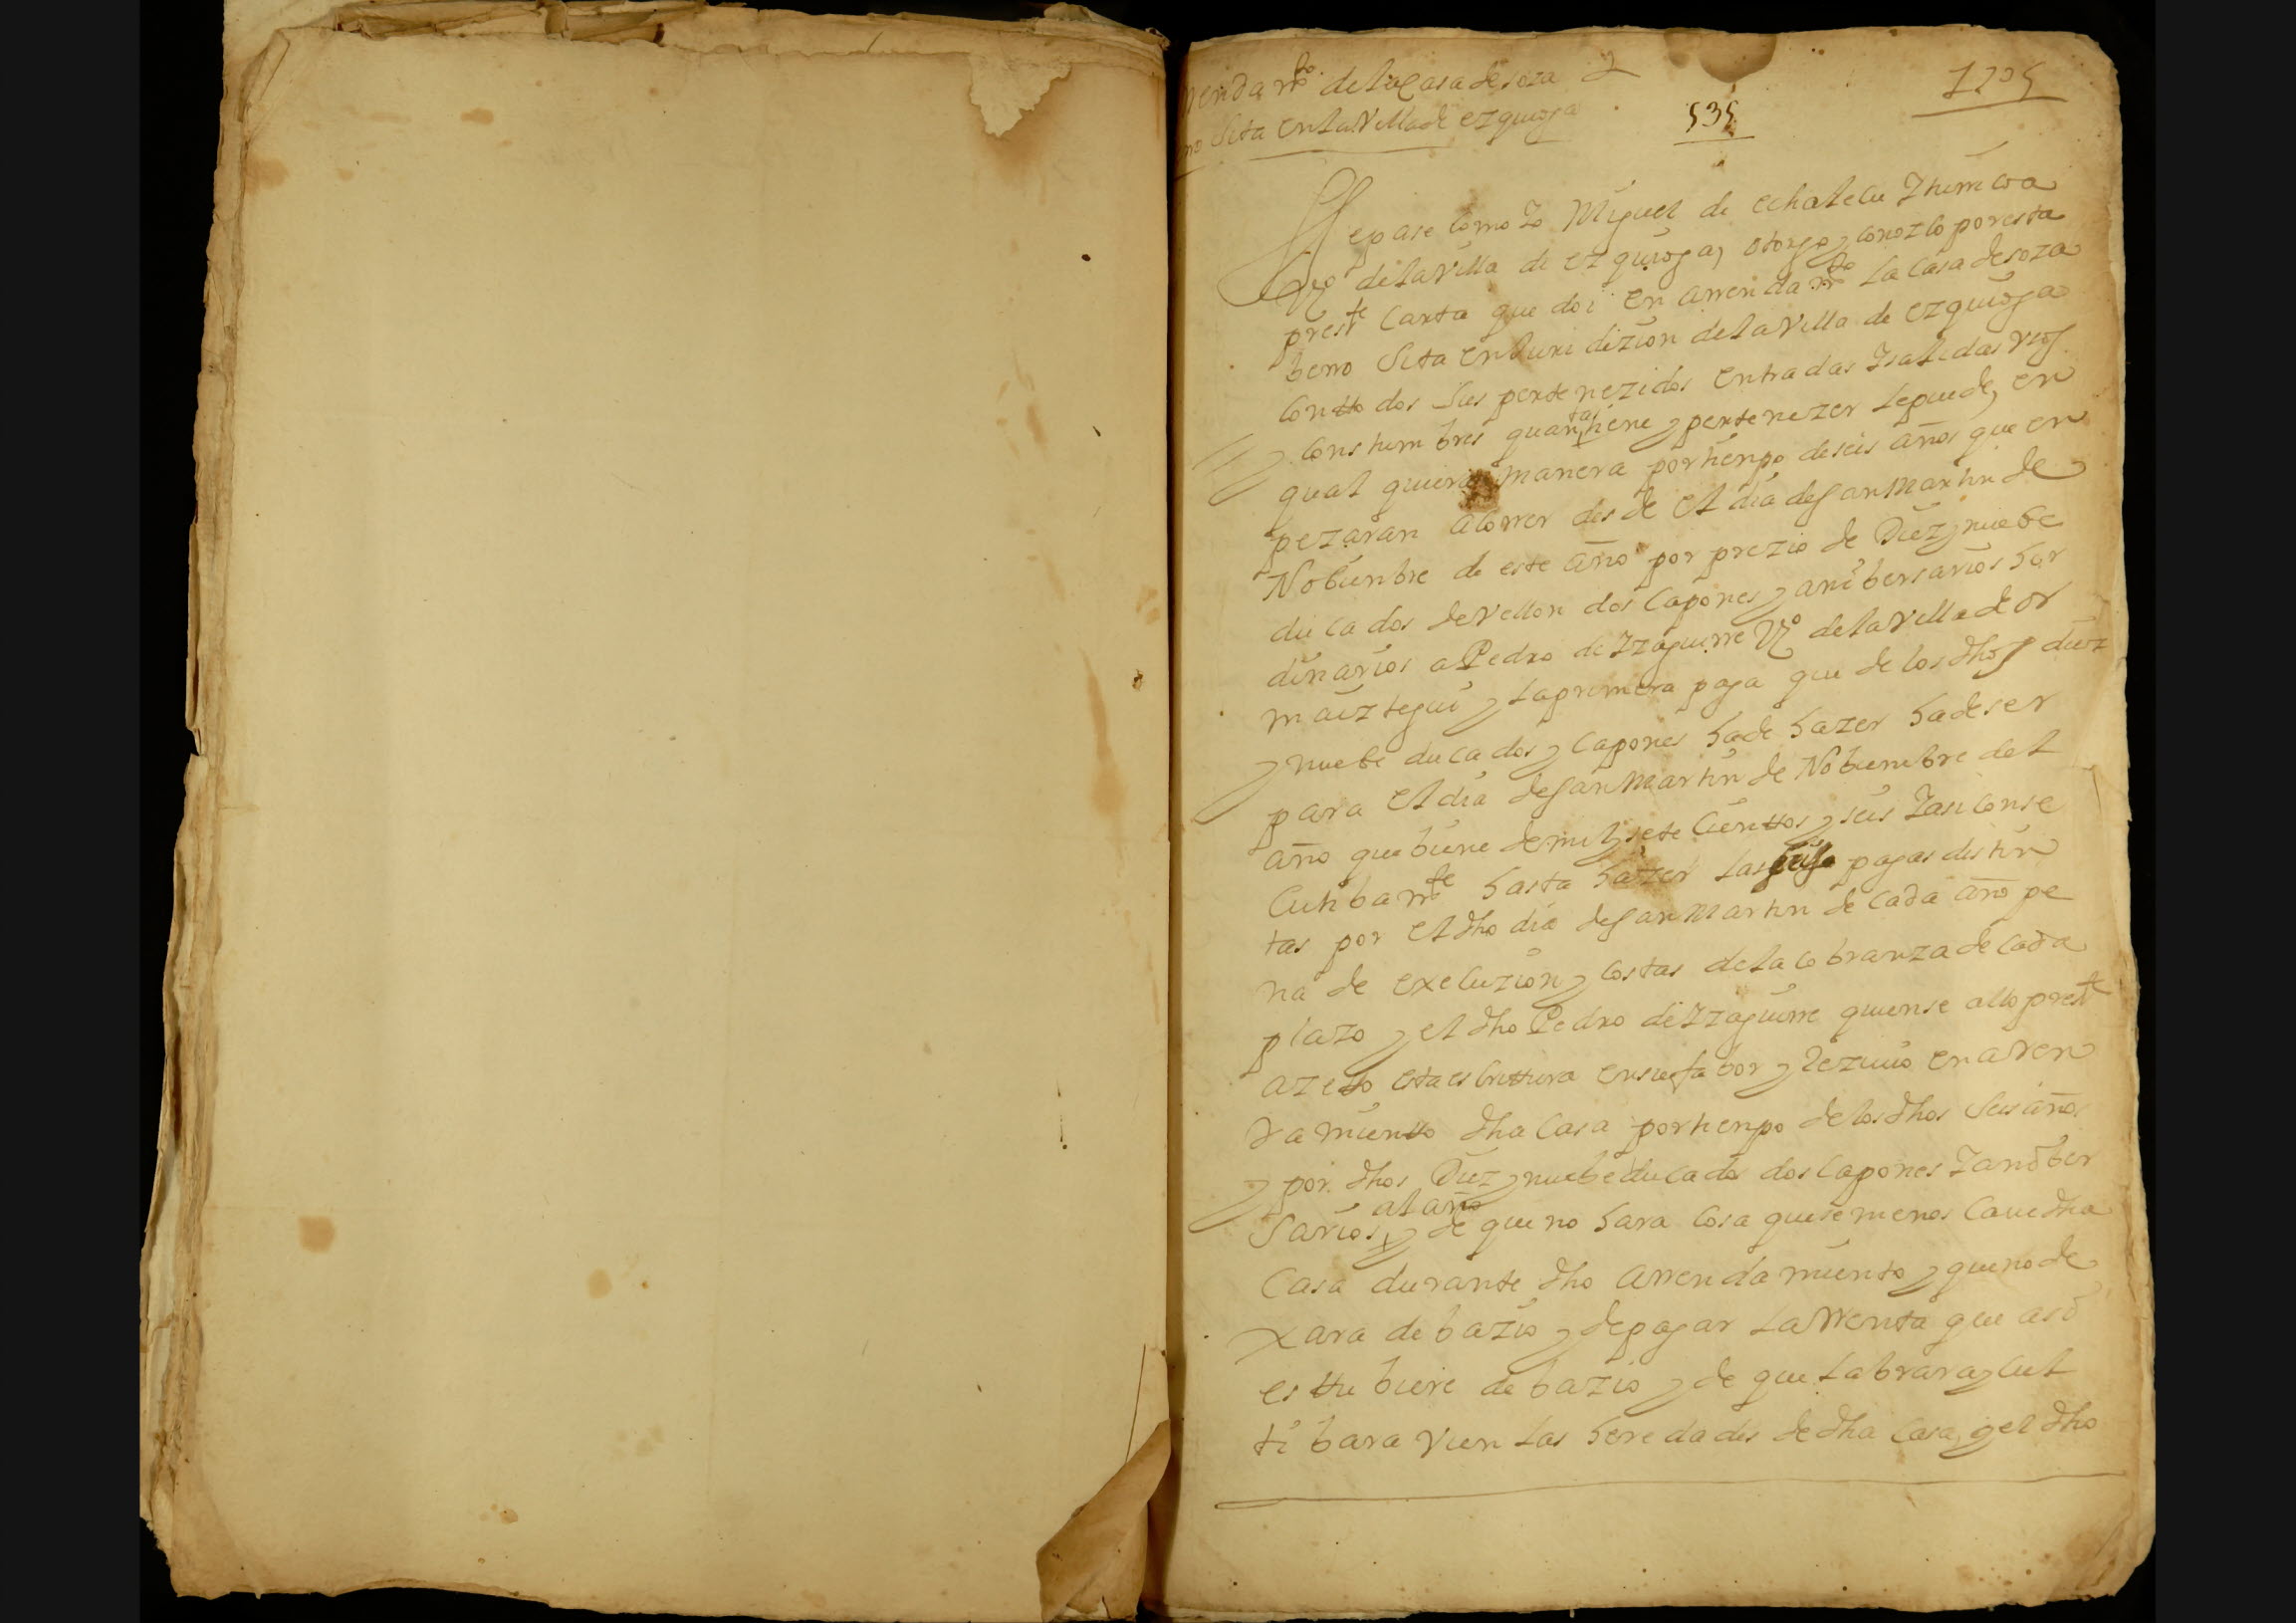 rrendamto de la Casa de soza
rno Sita en la Villa de ezquioga
535
1705
Sepase como Yo Miguel de echalecu Ythurricoa
Vº de la Villa de ezquioga, otorgo y conozco por esta
prestte Carta que doi en arrendamto la Casa de soza
berro Sita en Juridizion de la Villa de ezquioga
con ttodos sus pertenezidos entradas Y salidas usos
y constumbres quantas tiene y pertenezer le puede, en
qual quiera manera por tienpo de seis años que en
pezaran a correr desde el dia de san Martin de
Nobienbre de este año por prezio de Diez y nuebe
ducados de Vellon dos Capones y anibersarios hor
dinarios a Pedro de Yzaguirre Vº de la Villa de or
maiztegui y la primera paga que de los dhos diez
y nuebe ducados y capones ha de hazer ha de ser
para el dia de san Martin de Nobiembre del
año que biene de mil y sete Cienttos y seis Y asi conse
Cutibamte hasta hazer las seis pagas distin
tas por el dho dia de san Martin de Cada año pe
na de execuzion y costas de la cobranza de Cada
plazo y el dho Pedro de Yzaguirre quien se allo prestte
azetto esta escrittura en su fabor y rezivio en aren
damientto dha Casa por tienpo de los dhos Seis años
y por dhos Diez y nuebe ducados dos capones Y aniber
sarios al año y de que no hara Cosa que se menos Cave dha
Casa durante dho arrendamiento y que no de
xara de bazio y de pagar la rrenta que asi
esttubiere de bazio y de que labrara y cul
tibara vien las heredades de dha Casa, y el dho